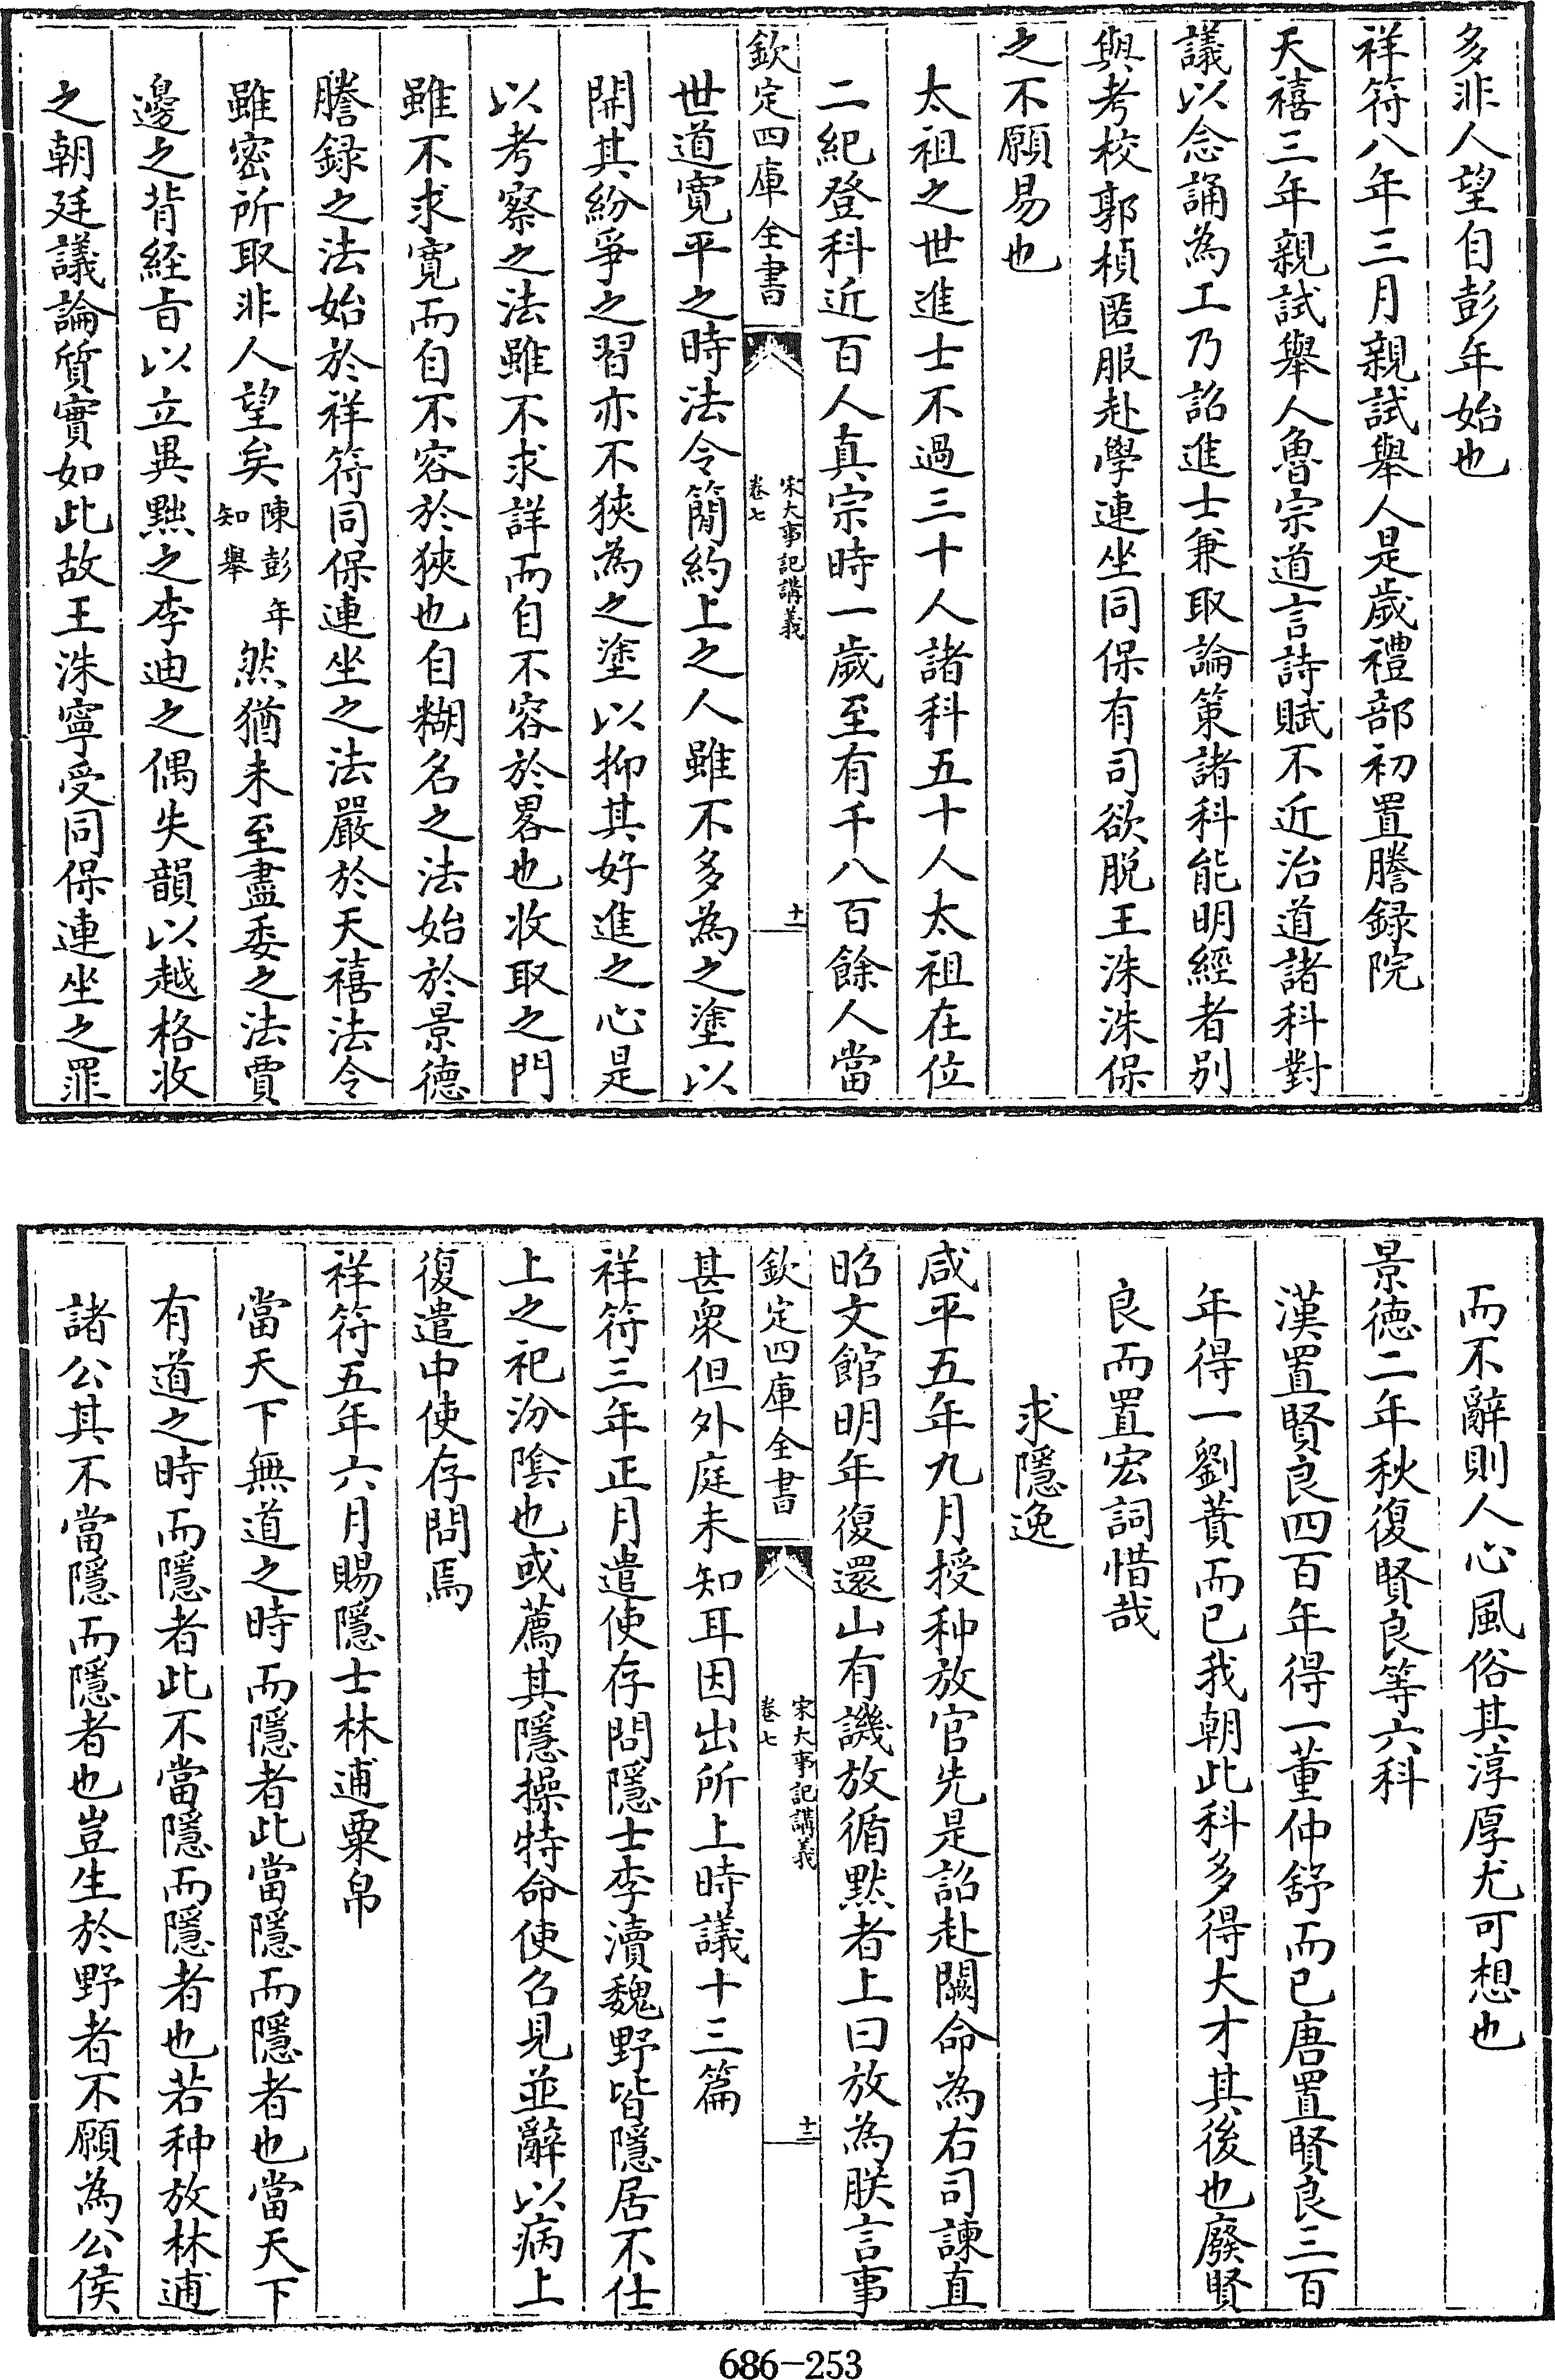 多非人望自彭年始也
祥符八年三月親試舉人是歲禮部初置謄録院
天禧三年親試舉人魯宗道言詩賦不近治道諸科對
議以念誦為工乃詔進士兼取論策諸科能明經者別
與考校郭楨匿服赴學連坐同保有司欲脱王洙洙保
之不願易也
太祖之世進士不過三十人諸科五十人太祖在位
二紀登科近百人真宗時一歲至有千八百餘人當
欽定四庫全書
宋大事記講義
卷七
十一
世道寛平之時法令簡約上之人雖不多為之塗以
開其紛爭之習亦不狹為之塗以抑其好進之心是
以考察之法雖不求詳而自不容於畧也收取之門
雖不求寛而自不容於狹也自糊名之法始於景德
謄録之法始於祥符同保連坐之法嚴於天禧法令
雖密所取非人望矣陳彭年知舉然猶未至盡委之法賈
邊之背経旨以立異黜之李迪之偶失韻以越格收
之朝廷議論質實如此故王洙寧受同保連坐之罪
而不辭則人心風俗其淳厚尤可想也
景德二年秋復賢良等六科
漢置賢良四百年得一董仲舒而已唐置賢良三百
年得一劉蕡而已我朝此科多得大才其後也廢賢
良而置宏詞惜哉
求隱逸
咸平五年九月授种放官先是詔赴闕命為右司諫直
昭文館明年復還山有譏放循黙者上曰放為朕言事
欽定四庫全書
宋大事記講義
卷七
十二
甚衆但外庭未知耳因出所上時議十三篇
祥符三年正月遣使存問隱士李瀆魏野皆隱居不仕
上之祀汾陰也或薦其隱操特命使召見並辭以病上
復遣中使存問焉
祥符五年六月賜隱士林逋粟帛
當天下無道之時而隱者此當隱而隱者也當天下
有道之時而隱者此不當隱而隱者也若种放林逋
諸公其不當隱而隱者也豈生於野者不願為公侯
686-253